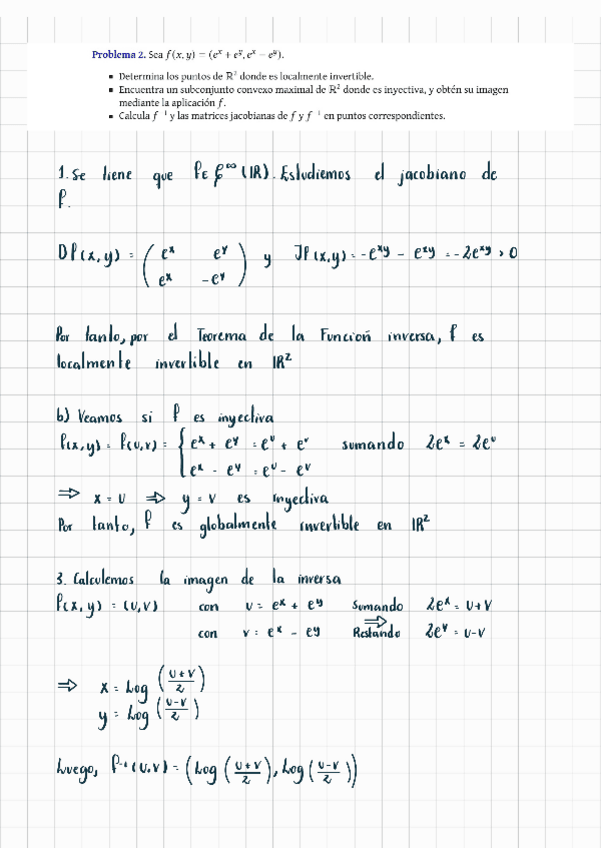 Problema 2. Sea f(x, y) = (eˣ + eʸ, eˣ − eʸ).
▪ Determina los puntos de ℝ² donde es localmente invertible.
▪ Encuentra un subconjunto convexo maximal de ℝ² donde es inyectiva, y obtén su imagen
mediante la aplicación f.
▪ Calcula f⁻¹ y las matrices jacobianas de f y f⁻¹ en puntos correspondientes.
1. Se tiene que f ∈ C^∞(IR). Estudiemos el jacobiano de
f.
Df(x,y) = ( eˣ eʸ ; eˣ -eʸ ) y Jf(x,y) = -e^xy - e^xy = -2e^xy > 0
Por tanto, por el Teorema de la Función inversa, f es
localmente invertible en IR²
b) Veamos si f es inyectiva
f(x,y) = f(u,v) = { eˣ + eʸ = eᵘ + eᵛ sumando 2eˣ = 2eᵘ
eˣ - eʸ = eᵘ - eᵛ
⇒ x = u ⇒ y = v es inyectiva
Por tanto, f es globalmente invertible en IR²
3. Calculemos la imagen de la inversa
f(x,y) = (u,v) con u = eˣ + eʸ Sumando 2eˣ = u+v
⇒
con v = eˣ - eʸ Restando 2eʸ = u-v
⇒ x = Log (u+v / 2)
y = Log (u-v / 2)
Luego, f⁻¹(u,v) = (Log (u+v / 2), Log (u-v / 2))